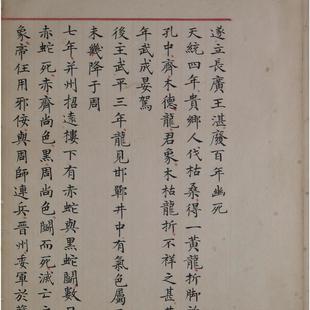 遂立長廣王湛廢百年幽死
天統四年貴鄉人伐枯桑得一黃龍折脚
孔中齊木德龍君象木枯龍折不祥之甚
年武成晏駕
後主武平三年龍見邯鄲井中有氣色屬
未幾降于周
七年并州招遠樓下有赤蛇與黑蛇鬪數
赤蛇死赤齊尚色黑周尚色鬪而死滅亡之
象帝任用邪佞與周師連兵晉州委軍於